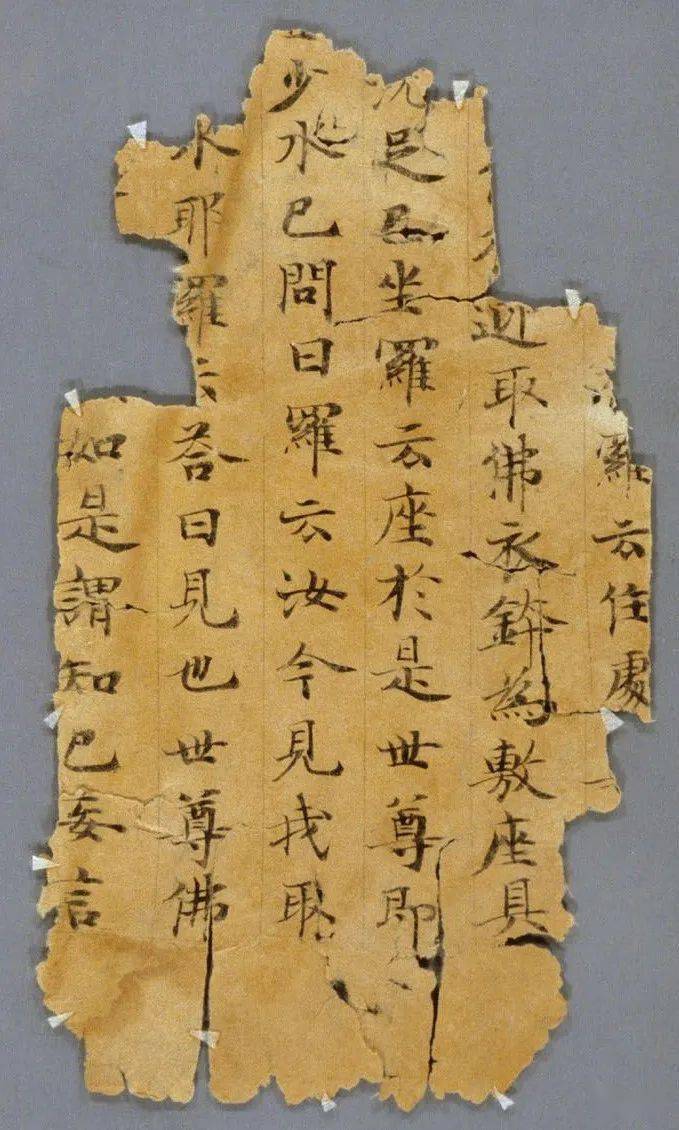 羅云住處
迎取佛衣鉢為敷座具
洗足已坐羅云座於是世尊即
少水已問曰羅云汝今見我取
水耶羅云荅曰見也世尊佛
如是謂知已妄言